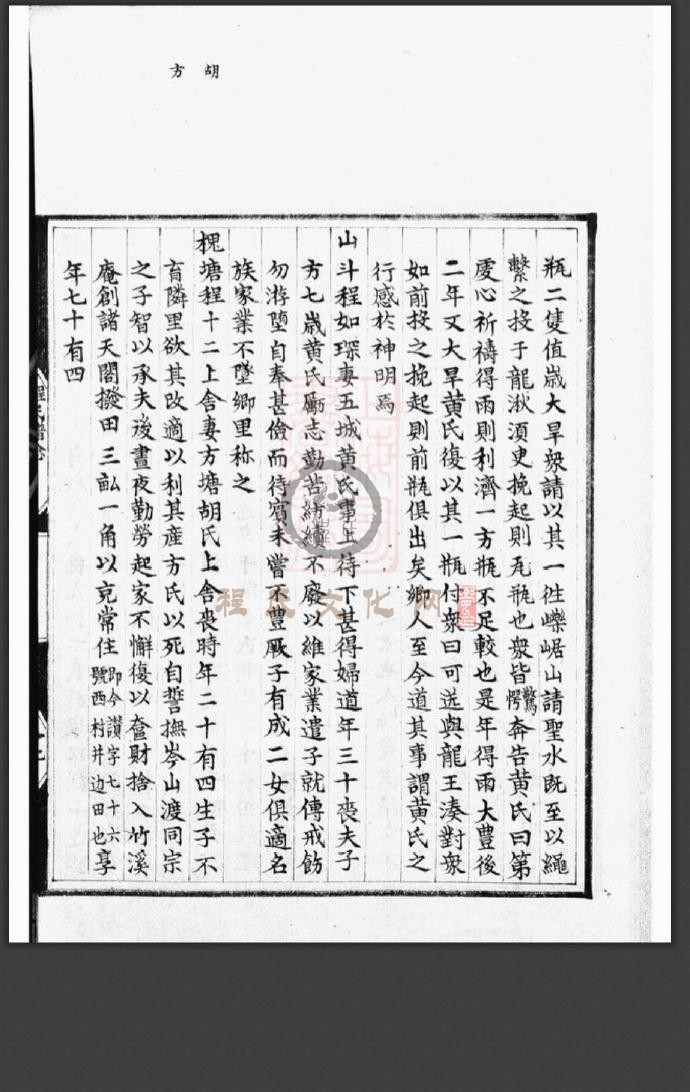 胡方
瓶二隻值歲大旱衆請以其一徃嶫崌山請聖水既至以繩
繫之投于龍湫湏臾挽起則瓦瓶也衆皆驚愕奔告黄氏曰第
䖍心祈禱得雨則利濟一方瓶不足較也是年得雨大豊後
二年又大旱黄氏復以其一瓶付衆曰可送與龍王湊對衆
如前投之挽起則前瓶俱出矣鄉人至今道其事謂黄氏之
行感於神明焉
山斗程如琛妻五城黄氏事上待下甚得婦道年三十喪夫子
方七歲黄氏厲志勤苦紡績不廢以維家業遣子就傅戒飭
勿游墮自奉甚儉而待賔未嘗不豊厥子有成二女俱適名
族家業不墜鄉里称之
槐塘程十二上舍妻方塘胡氏上舍喪時年二十有四生子不
育隣里欲其改適以利其産方氏以死自誓撫岑山渡同宗
之子智以承夫後晝夜勤勞起家不懈復以奩財捨入竹溪
庵創諸天閣撥田三畝一角以充常住即今讃字七十六號西村井边田也享
年七十有四
程氏文化网